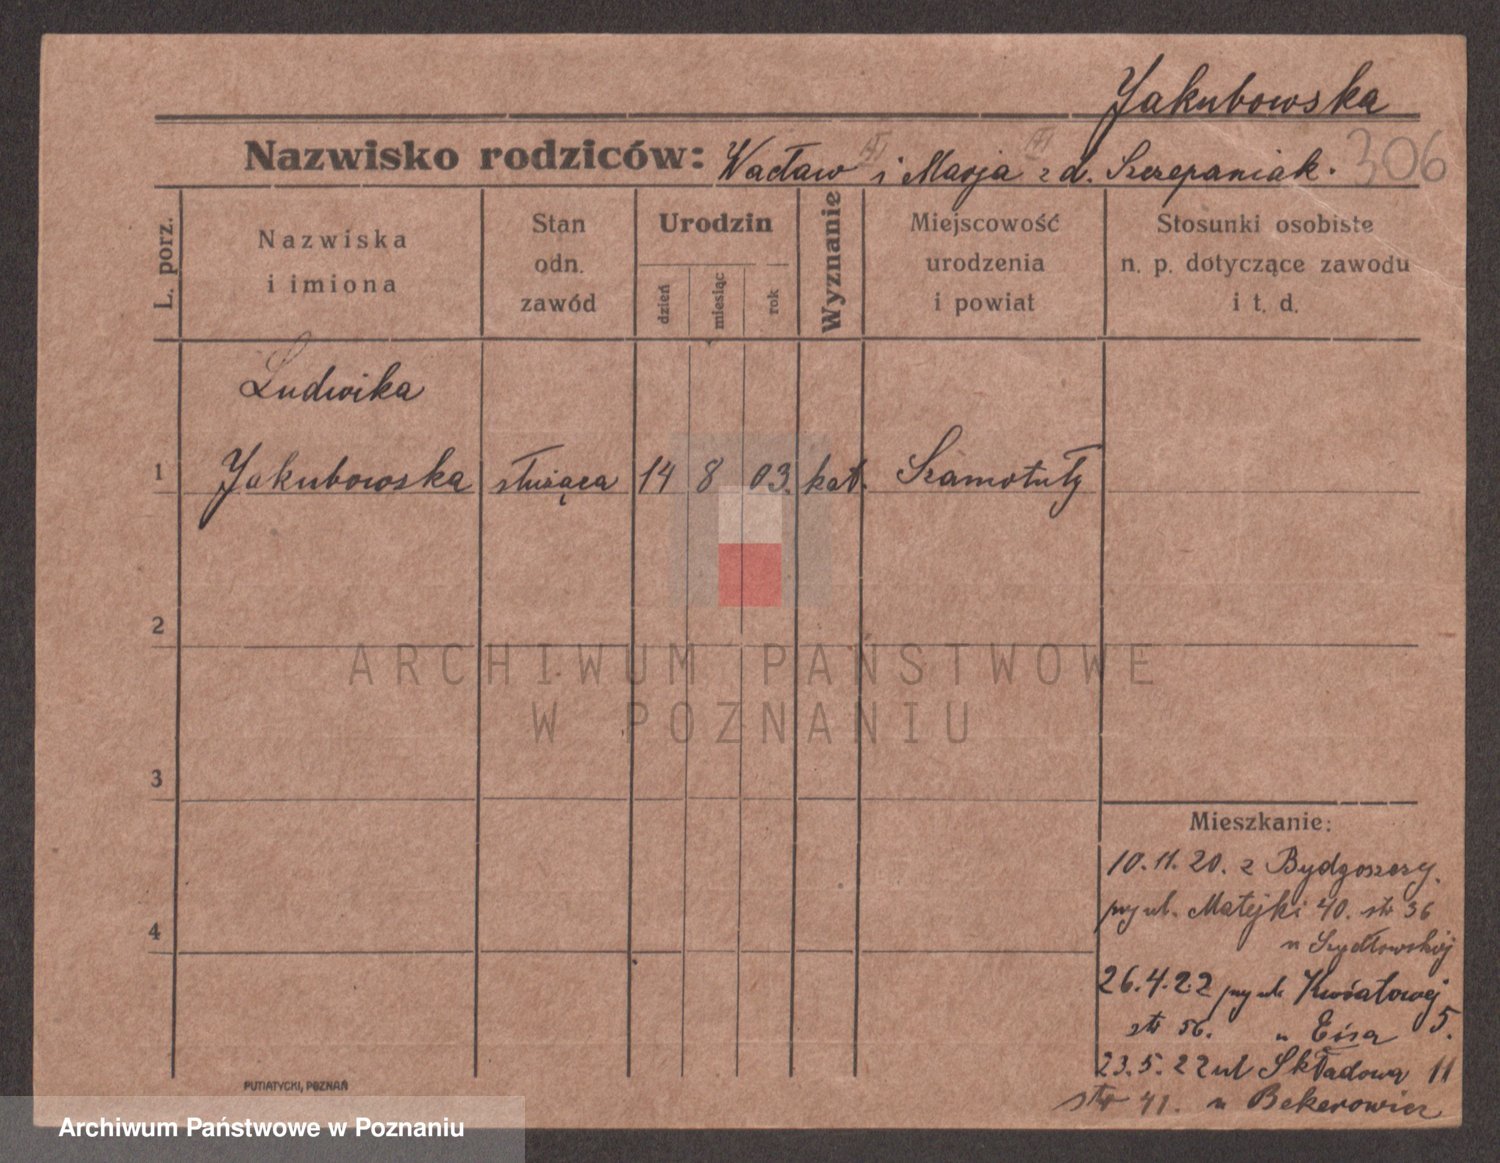 Jakubowska
Nazwisko rodziców: Wacław i Marja z d. Szczepaniak.
306
L. porz.
Nazwiska
i imiona
Stan
odn.
zawód
Urodzin
dzień
miesiąc
rok
Wyznanie
Miejscowość
urodzenia
i powiat
Stosunki osobiste
n. p. dotyczące zawodu
i t. d.
Ludwika
1 Jakubowska służąca 14 8 03. kat. Szamotuły
2
3
4
ARCHIWUM PAŃSTWOWE
W POZNANIU
Mieszkanie:
10.11.20. z Bydgoszczy.
przy ul. Matejki 40. str 36
u Szydłowskiej
26.4.22 przy ul. Kwiatowej 5.
str 56. u Eisa
23.5.22 ul Składowa 11
str 41. u Bekerowicz
PUTIATYCKI, POZNAŃ
Archiwum Państwowe w Poznaniu